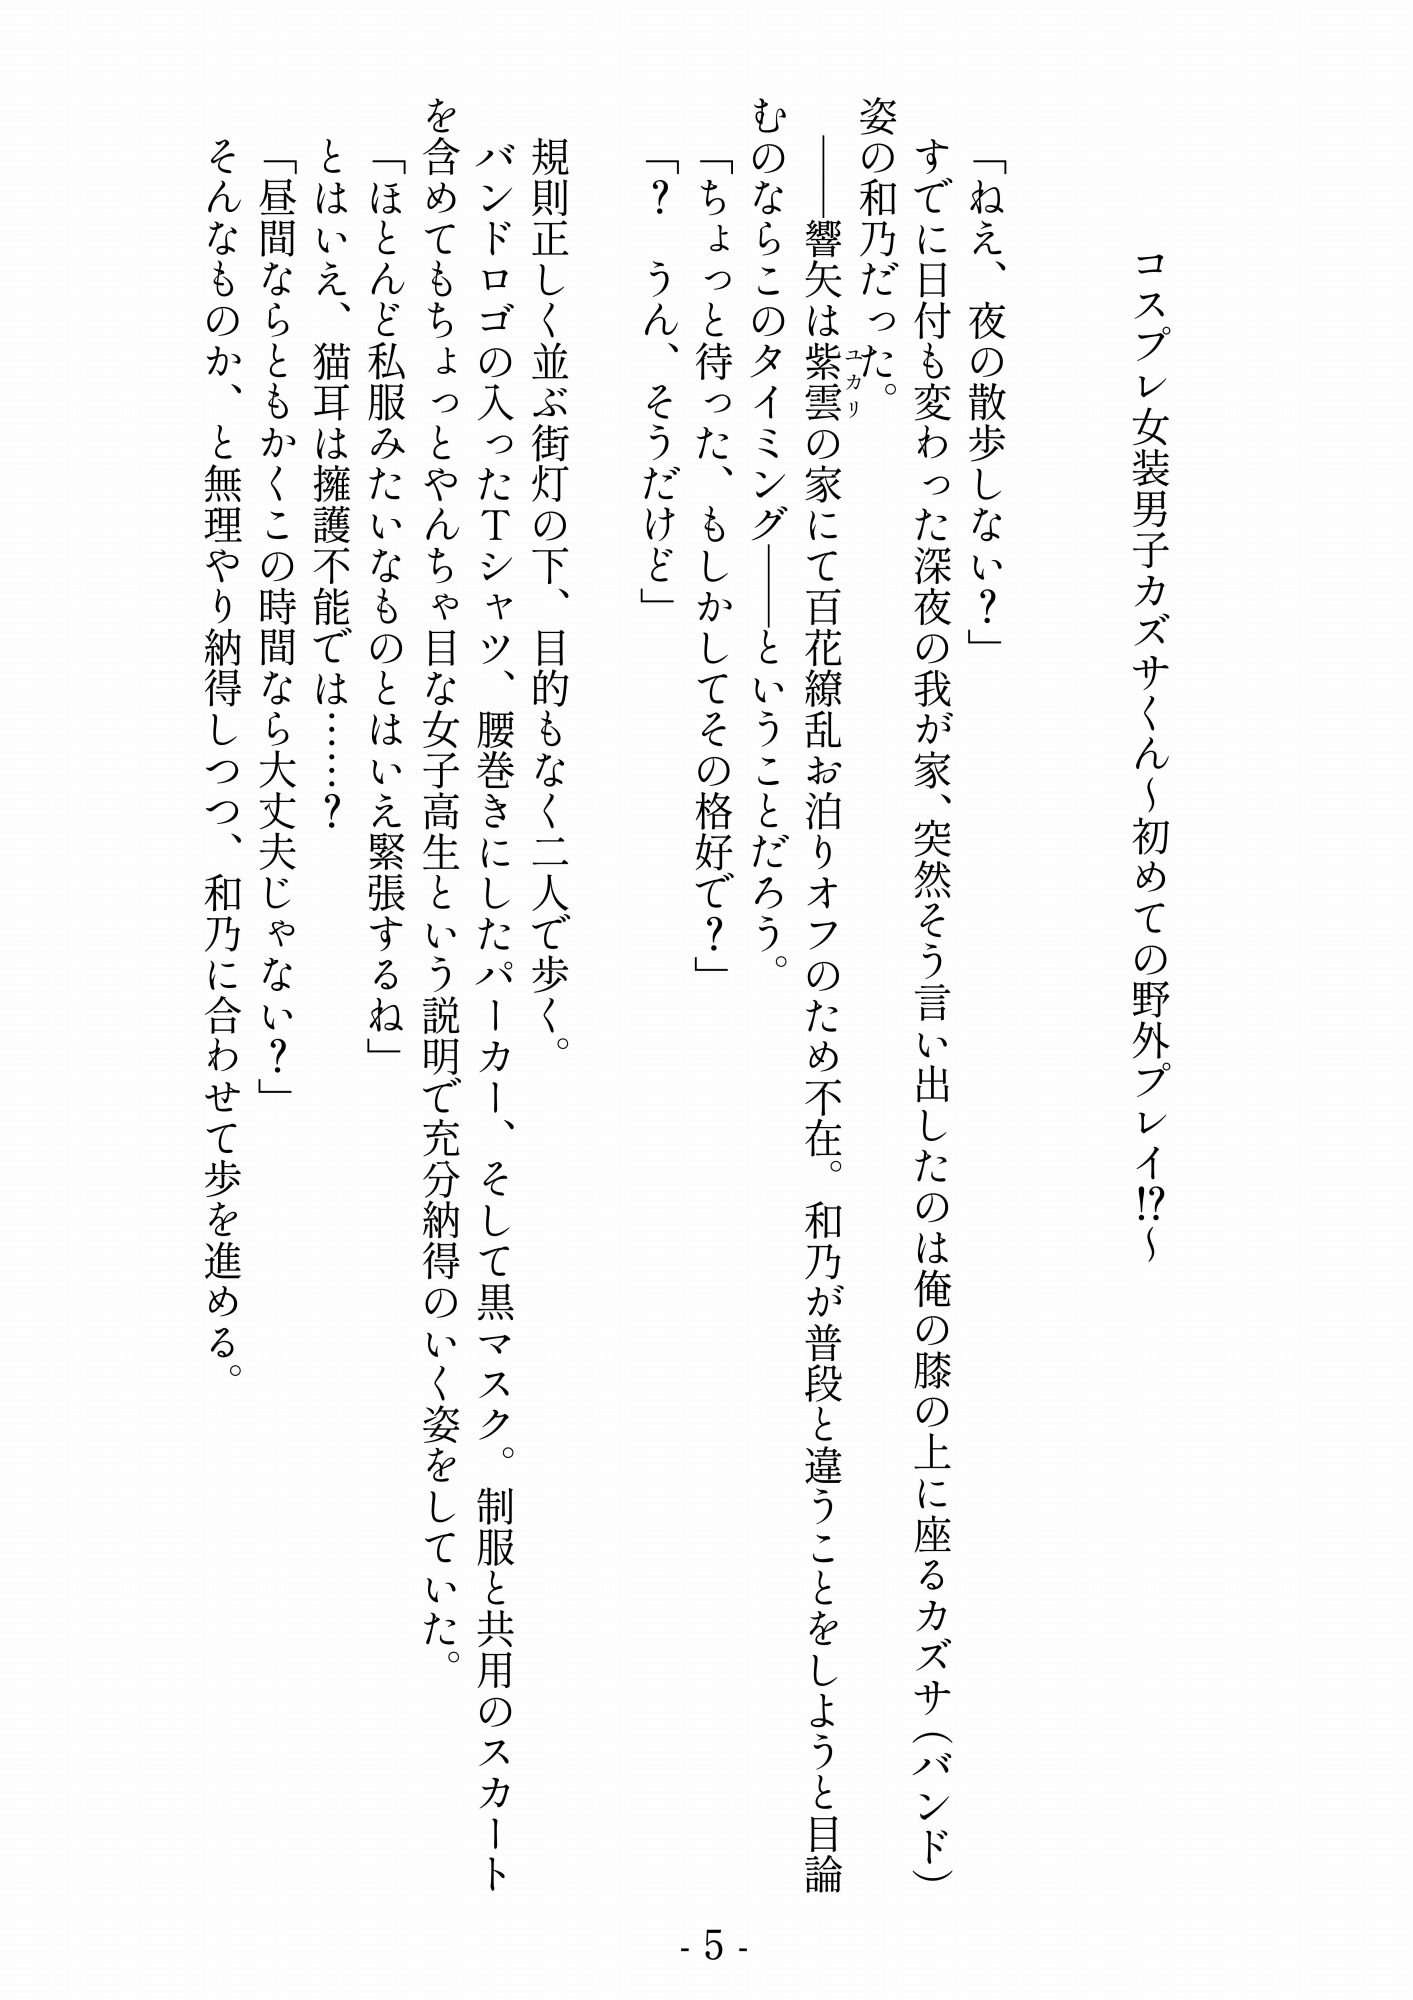 コスプレ女装男子カズサくん～初めての野外プレイ!?～
「ねえ、夜の散歩しない？」
すでに日付も変わった深夜の我が家、突然そう言い出したのは俺の膝の上に座るカズサ（バンド）
姿の和乃だった。
――響矢は紫雲の家にて百花繚乱お泊りオフのため不在。和乃が普段と違うことをしようと目論
ユカリ
むのならこのタイミング――ということだろう。
「ちょっと待った、もしかしてその格好で？」
「？　うん、そうだけど」
規則正しく並ぶ街灯の下、目的もなく二人で歩く。
バンドロゴの入ったTシャツ、腰巻きにしたパーカー、そして黒マスク。制服と共用のスカート
を含めてもちょっとやんちゃ目な女子高生という説明で充分納得のいく姿をしていた。
「ほとんど私服みたいなものとはいえ緊張するね」
とはいえ、猫耳は擁護不能では……？
「昼間ならともかくこの時間なら大丈夫じゃない？」
そんなものか、と無理やり納得しつつ、和乃に合わせて歩を進める。
- 5 -